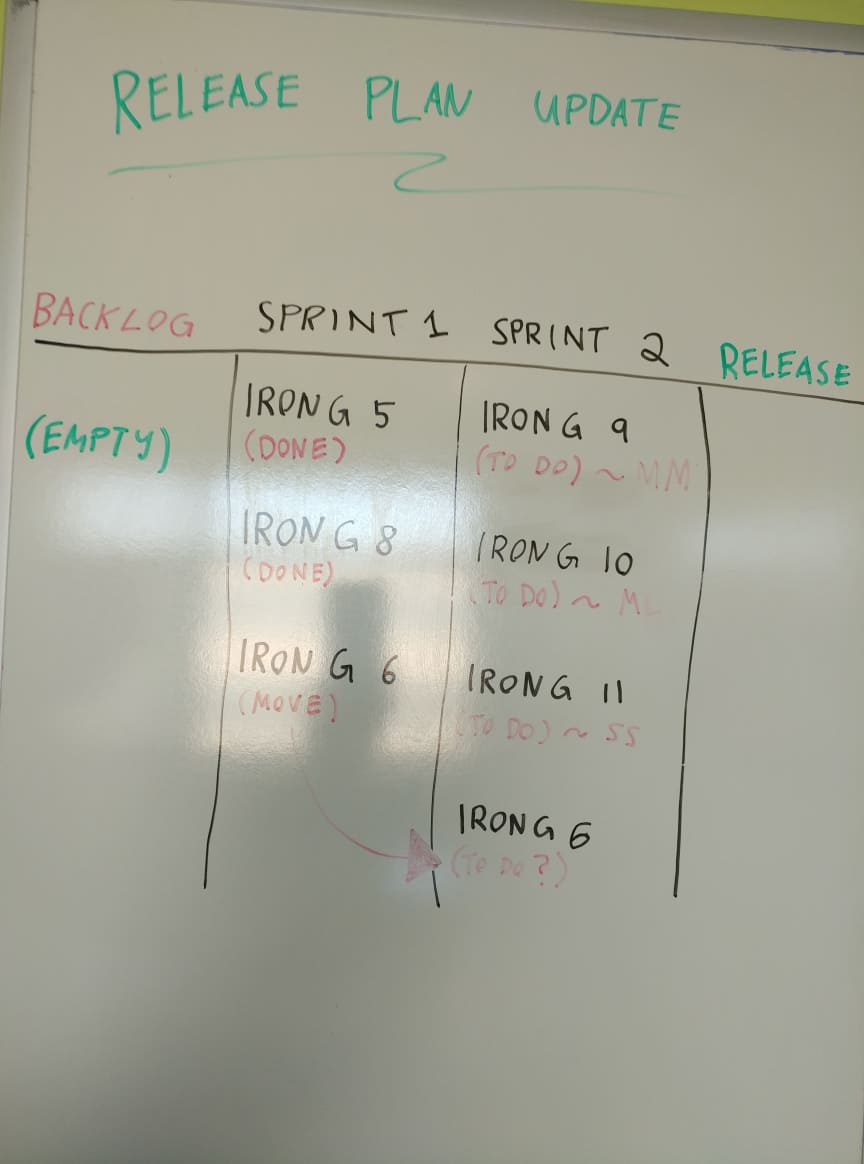 RELEASE PLAN UPDATE
BACKLOG SPRINT 1 SPRINT 2 RELEASE
(EMPTY)
IRONG 5
(DONE)
IRONG 8
(DONE)
IRONG 6
(MOVE)
IRONG 9
(TO DO) ~ MM
IRONG 10
(TO DO) ~ ML
IRONG 11
(TO DO) ~ SS
IRONG 6
(TO DO?)